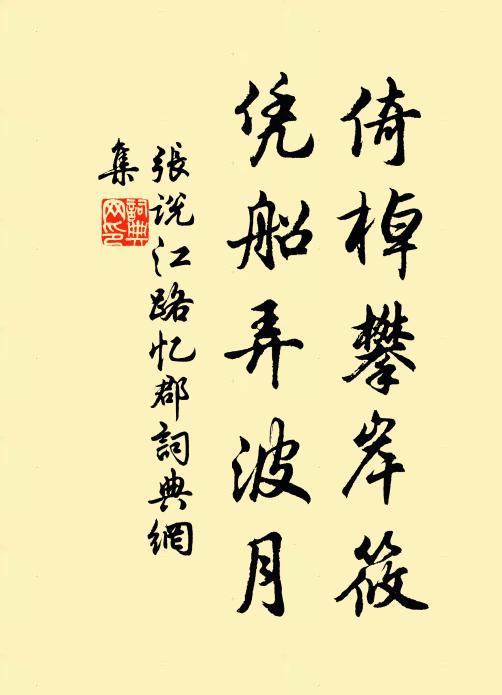 倚棹攀岸筱
凭船弄波月
張说江路忆郡詞典網
集
詞典
网印